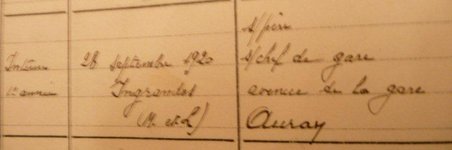 Interne
1e année
28 septembre 1920
Ingrandes
(M. et L)
s/père
s/chef de gare
avenue de la gare
Auray